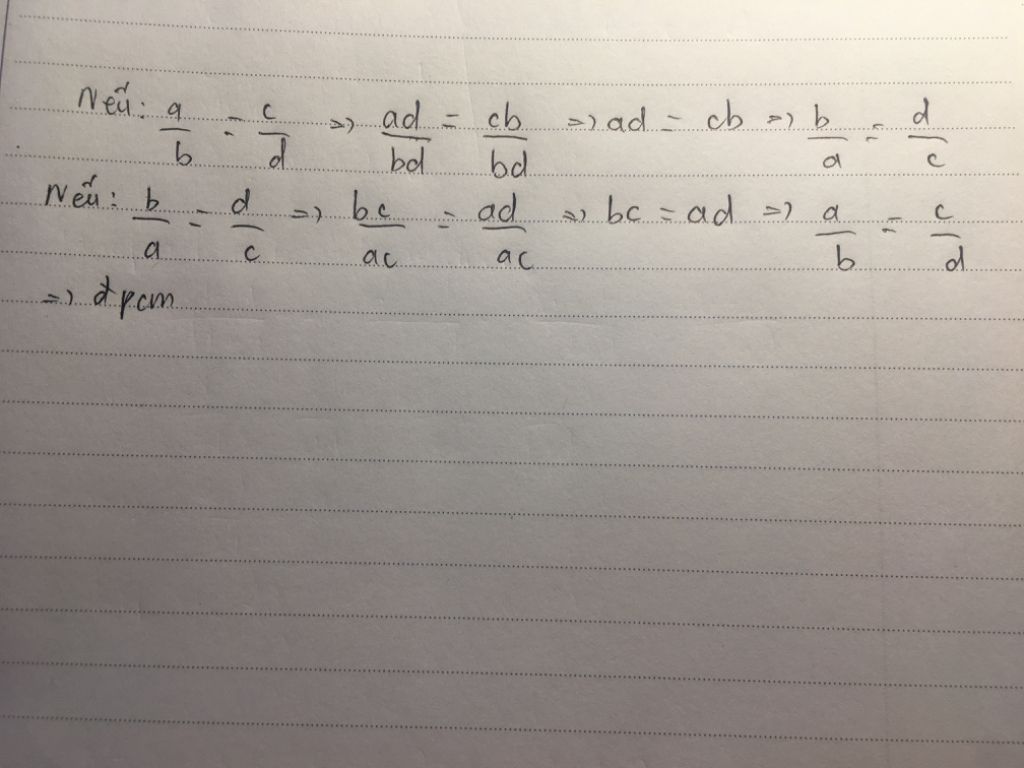 Nếu: a/b = c/d => ad/bd = cb/bd => ad = cb => b/a = d/c
Nếu: b/a = d/c => bc/ac = ad/ac => bc = ad => a/b = c/d
=> đpcm